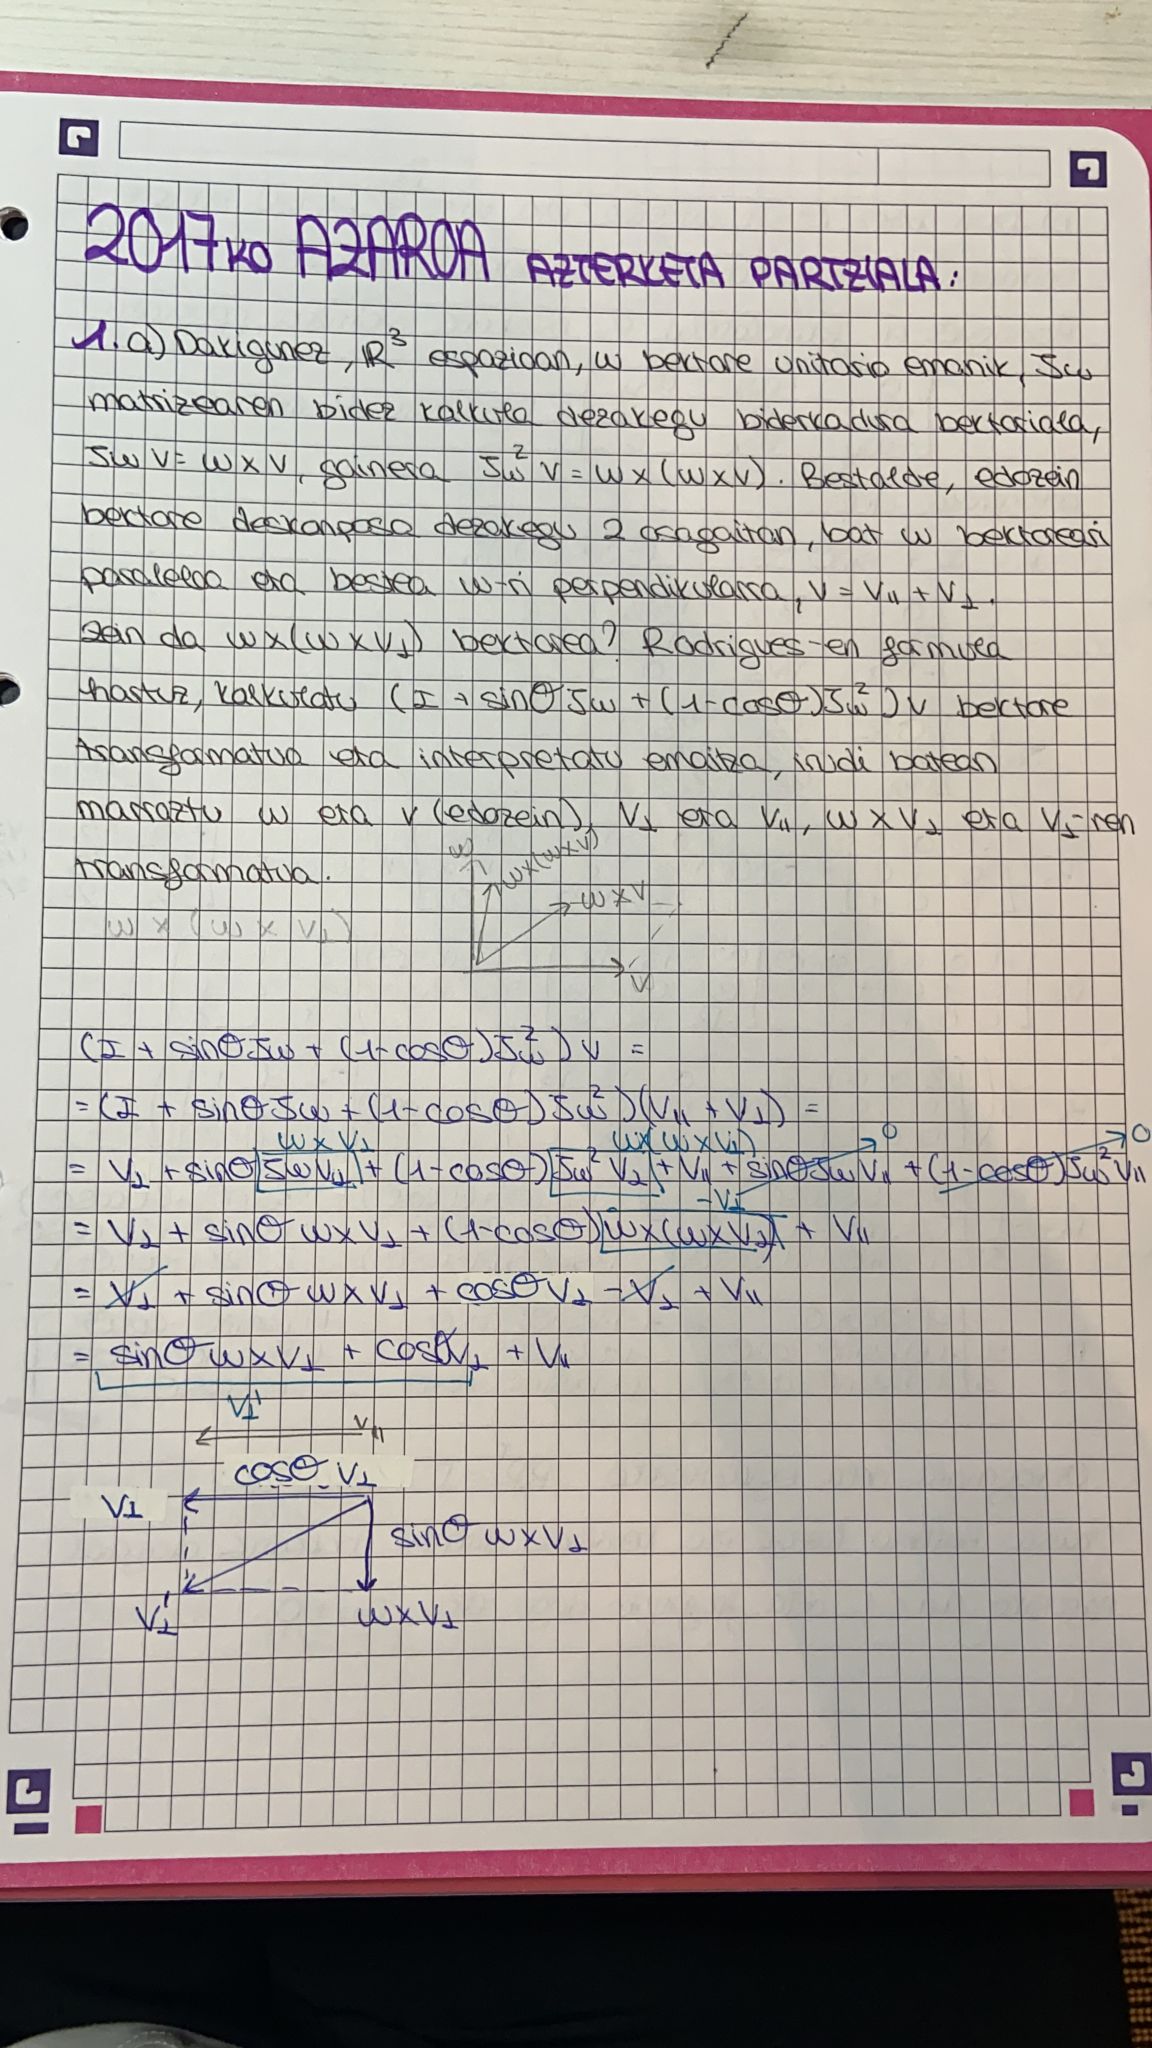 2017KO AZAROA AZTERKETA PARTZIALA:
1. a) Dakigunez, ℝ³ espazioan, w bektore unitario emanik, Jw
matrizearen bidez kalkula dezakegu biderkadura bektoriala,
Jw v = w × v, gainera Jw² v = w × (w × v). Bestalde, edozein
bektore deskonposa dezakegu 2 osagaitan, bat w bektoreari
paraleloa eta bestea w-ri perpendikularra, v = v∥ + v⊥.
Zein da w × (w × v⊥) bektorea? Rodrigues-en formula
hartuz, kalkulatu (I + sinθ Jw + (1-cosθ) Jw²) v bektore
transformatua eta interpretatu emaitza, irudi batean
marraztu w eta v (edozein), v⊥ eta v∥, w × v⊥ eta v⊥-ren
transformatua.
w
w × (w × v)
w × v
v
w × (w × v⊥)
(I + sinθ Jw + (1-cosθ) Jw²) v =
= (I + sinθ Jw + (1-cosθ) Jw²)(v∥ + v⊥) =
w × v⊥ w × (w × v⊥) 0 0
= v⊥ + sinθ Jw v⊥ + (1-cosθ) Jw² v⊥ + v∥ + sinθ Jw v∥ + (1-cosθ) Jw² v∥
-v⊥
= v⊥ + sinθ w × v⊥ + (1-cosθ) w × (w × v⊥) + v∥
= v⊥ + sinθ w × v⊥ + cosθ v⊥ - v⊥ + v∥
= sinθ w × v⊥ + cosθ v⊥ + v∥
v⊥'
v∥
cosθ v⊥
v⊥
sinθ w × v⊥
v⊥'
w × v⊥